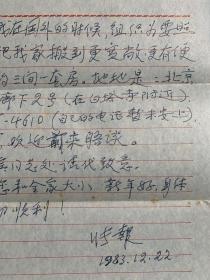 我在国外的时候,组织为了照
把我家搬到更宽敞更有便
的三间一套房,地址是:北京
廊下2号(在白塔寺附近).
-4610(自己的电话暂未安上).
欢迎前来晤谈。
同志处请代致意。
和全家大小 新年好,身体
切顺利!
1983.12.22